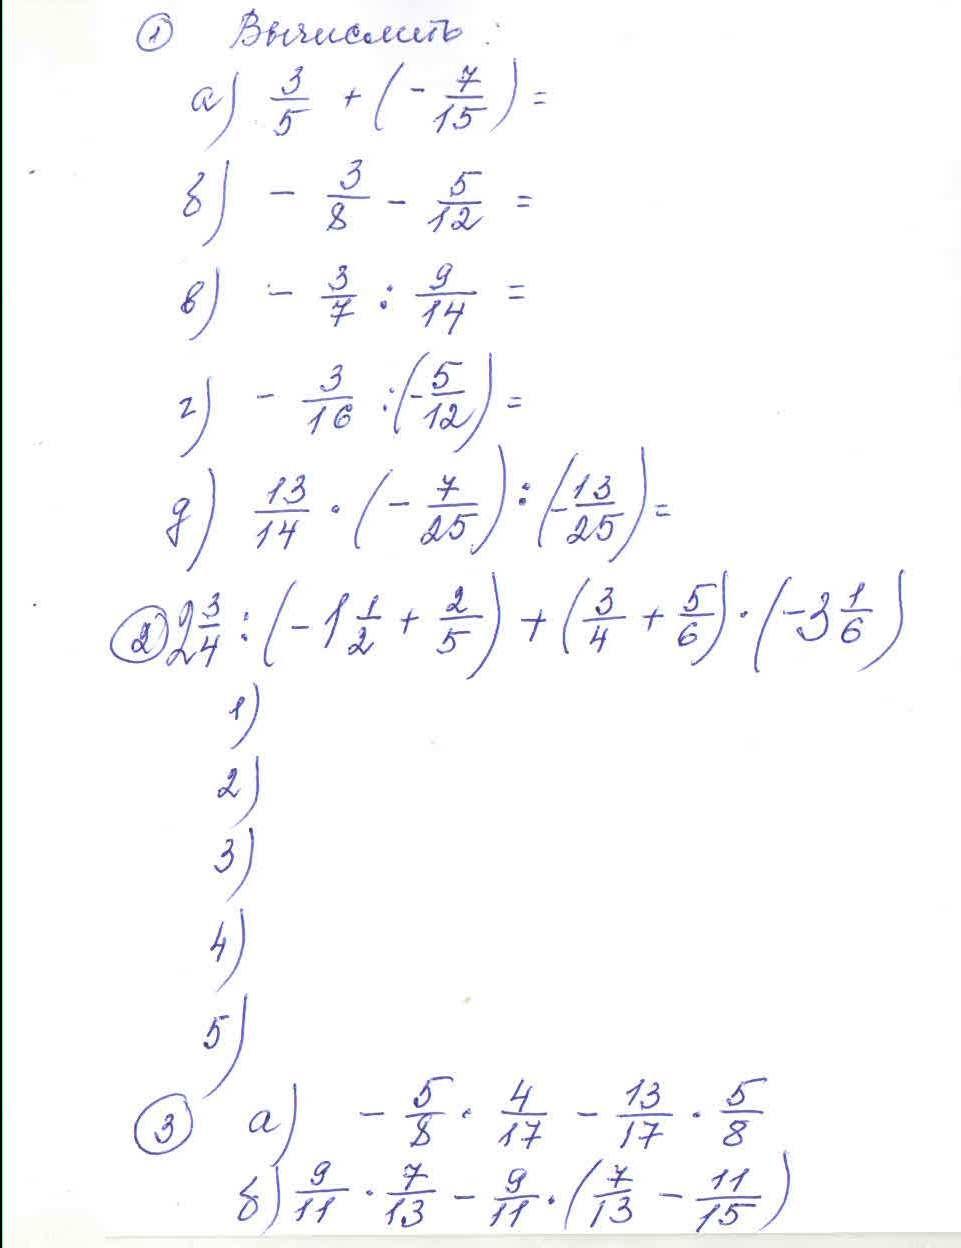 ① Вычислить:
а) 3/5 + (- 7/15) =
б) - 3/8 - 5/12 =
в) - 3/7 : 9/14 =
г) - 3/16 : (- 5/12) =
д) 13/14 · (- 7/25) : (- 13/25) =
② 2 3/4 : (- 1 1/2 + 2/5) + (3/4 + 5/6) · (- 3 1/6)
1)
2)
3)
4)
5)
③ а) - 5/8 · 4/17 - 13/17 · 5/8
б) 9/11 · 7/13 - 9/11 · (7/13 - 11/15)